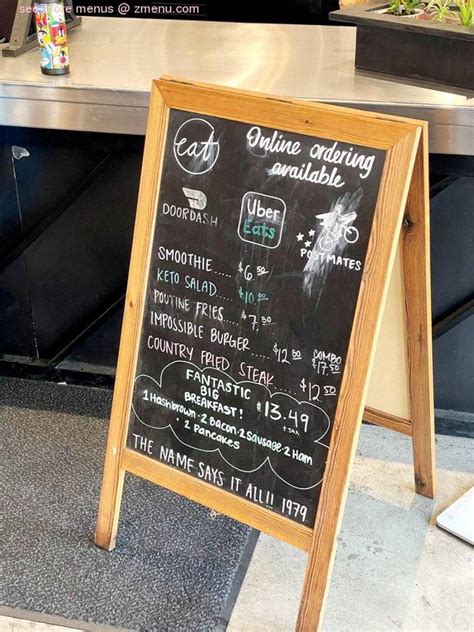 see more menus @ zmenu.com
eat
Online ordering
available
DOORDASH
Uber
Eats
POSTMATES
SMOOTHIE..... $6.50
KETO SALAD..... $10.00
POUTINE FRIES.... $7.50
IMPOSSIBLE BURGER ..... $12.00 COMBO $17.50
COUNTRY FRIED STEAK .... $12.50
FANTASTIC
BIG
BREAKFAST! $13.49
+ TAX
1 Hashbrown · 2 Bacon · 2 Sausage · 2 Ham
· 2 Pancakes
THE NAME SAYS IT ALL!! 1979